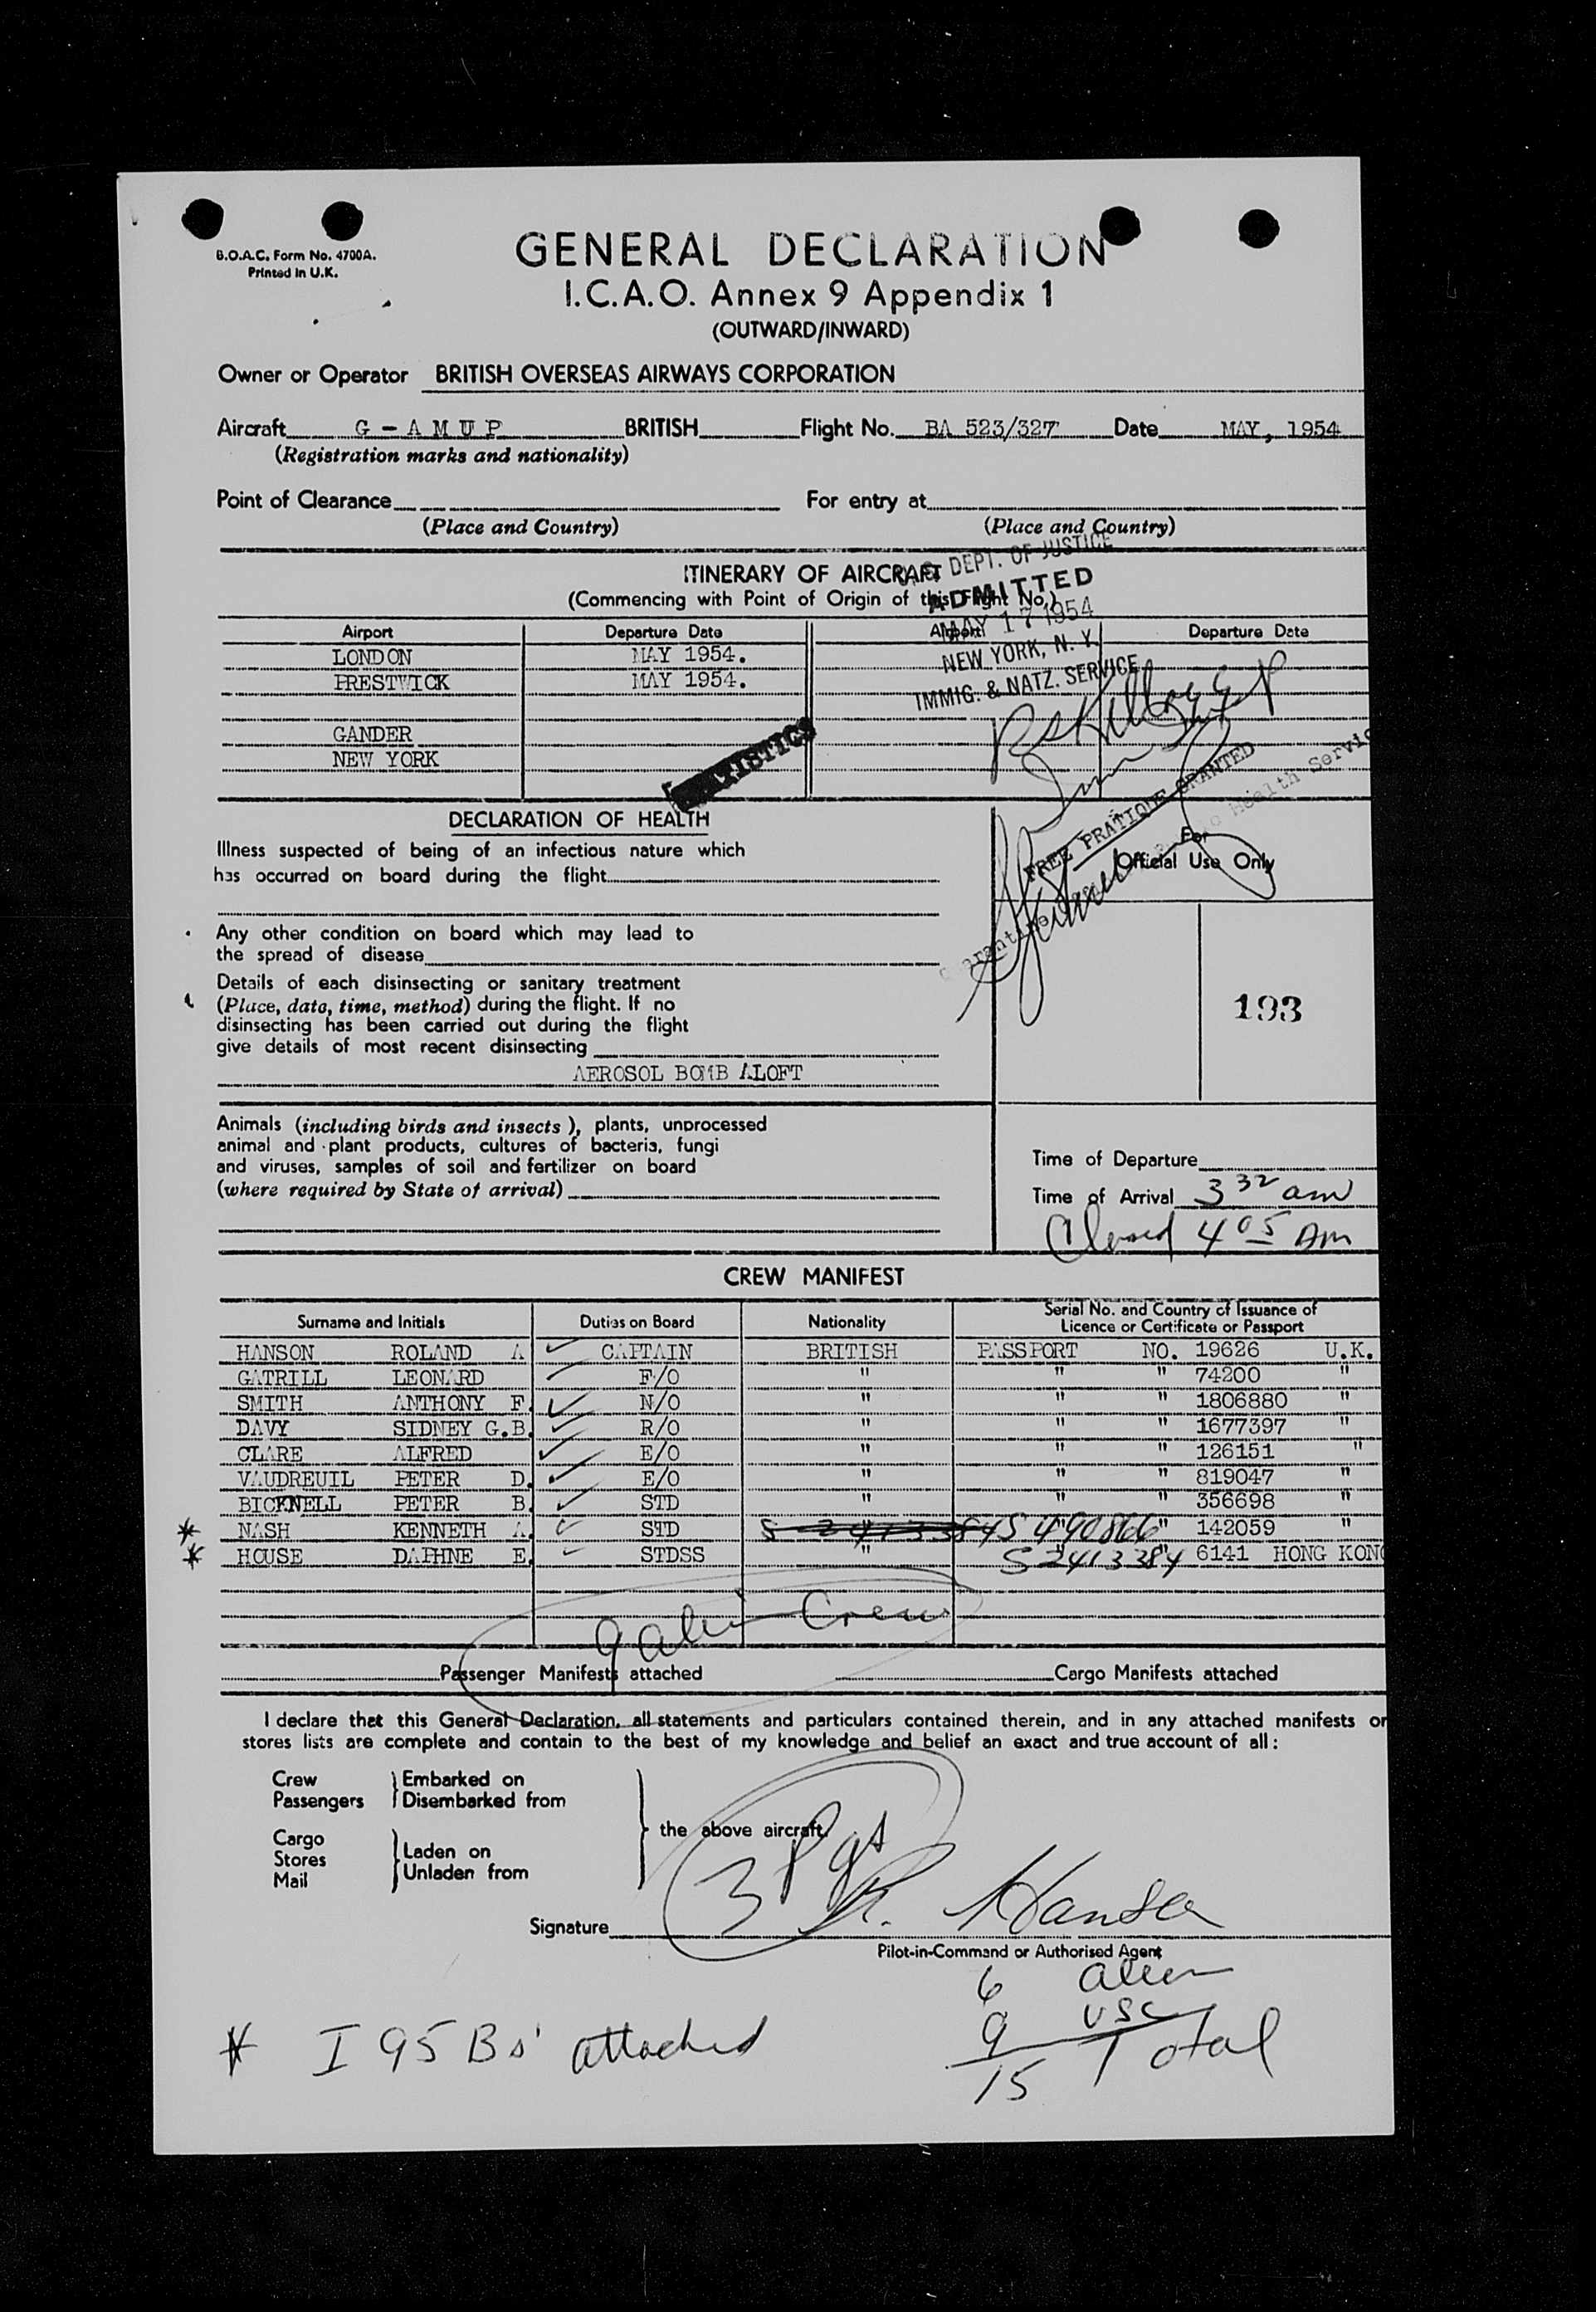 B.O.A.C. Form No. 4700A.
Printed in U.K.
GENERAL DECLARATION
I.C.A.O. Annex 9 Appendix 1
(OUTWARD/INWARD)
Owner or Operator BRITISH OVERSEAS AIRWAYS CORPORATION
Aircraft G - A M U P BRITISH Flight No. BA 523/327 Date MAY, 1954
(Registration marks and nationality)
Point of Clearance For entry at
(Place and Country) (Place and Country)
U.S. DEPT. OF JUSTICE
ITINERARY OF AIRCRAFT
ADMITTED
(Commencing with Point of Origin of this Flight No.)
MAY 17 1954
Airport Departure Date Airport Departure Date
NEW YORK, N. Y.
LONDON MAY 1954.
IMMIG. & NATZ. SERVICE
PRESTWICK MAY 1954.
GANDER
NEW YORK
STATISTICS
FREE PRATIQUE GRANTED
Health Service
DECLARATION OF HEALTH
For
Official Use Only
Illness suspected of being of an infectious nature which
has occurred on board during the flight
Any other condition on board which may lead to
the spread of disease
Details of each disinsecting or sanitary treatment
(Place, date, time, method) during the flight. If no
disinsecting has been carried out during the flight
give details of most recent disinsecting
AEROSOL BOMB ALOFT
193
Animals (including birds and insects), plants, unprocessed
animal and plant products, cultures of bacteria, fungi
and viruses, samples of soil and fertilizer on board
(where required by State of arrival)
Time of Departure
Time of Arrival 3 32 am
Cleared 4 05 Am
CREW MANIFEST
Surname and Initials Duties on Board Nationality Serial No. and Country of Issuance of Licence or Certificate or Passport
HANSON ROLAND A CAPTAIN BRITISH PASSPORT NO. 19626 U.K.
GATRILL LEONARD F/O " " " 74200 "
SMITH ANTHONY F. N/O " " " 1806880 "
DAVY SIDNEY G.B. R/O " " " 1677397 "
CLARE ALFRED E/O " " " 126151 "
VAUDREUIL PETER D. E/O " " " 819047 "
BICKNELL PETER B. STD " " " 356698 "
* NASH KENNETH A. STD " 142059 "
* HOUSE DAPHNE E. STDSS " S 2413384 " 6141 HONG KONG
9 alien Crew
Passenger Manifests attached Cargo Manifests attached
I declare that this General Declaration, all statements and particulars contained therein, and in any attached manifests or
stores lists are complete and contain to the best of my knowledge and belief an exact and true account of all:
Crew Passengers } Embarked on Disembarked from
the above aircraft.
Cargo Stores Mail } Laden on Unladen from
3 Pgs
Signature R. Hanson
Pilot-in-Command or Authorised Agent
6 alien
9 USC
15 Total
* I 95 Bs' attached